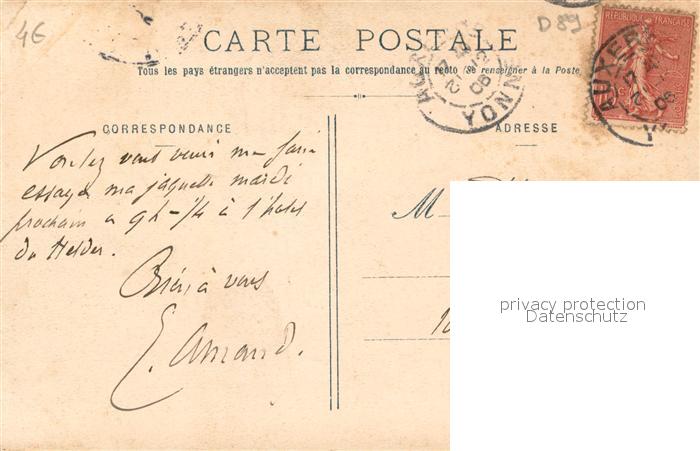 4€
D 89
CARTE POSTALE
Tous les pays étrangers n'acceptent pas la correspondance au recto (Se renseigner à la Poste
RÉPUBLIQUE FRANÇAISE
AUXERRE
YONNE
CORRESPONDANCE
ADRESSE
Voulez vous venir me faire
essayer ma jaquette mardi
prochain a 9h-1/4 à l'hotel
du Helder.
Bien à vous
E. Amand.
M
privacy protection
Datenschutz